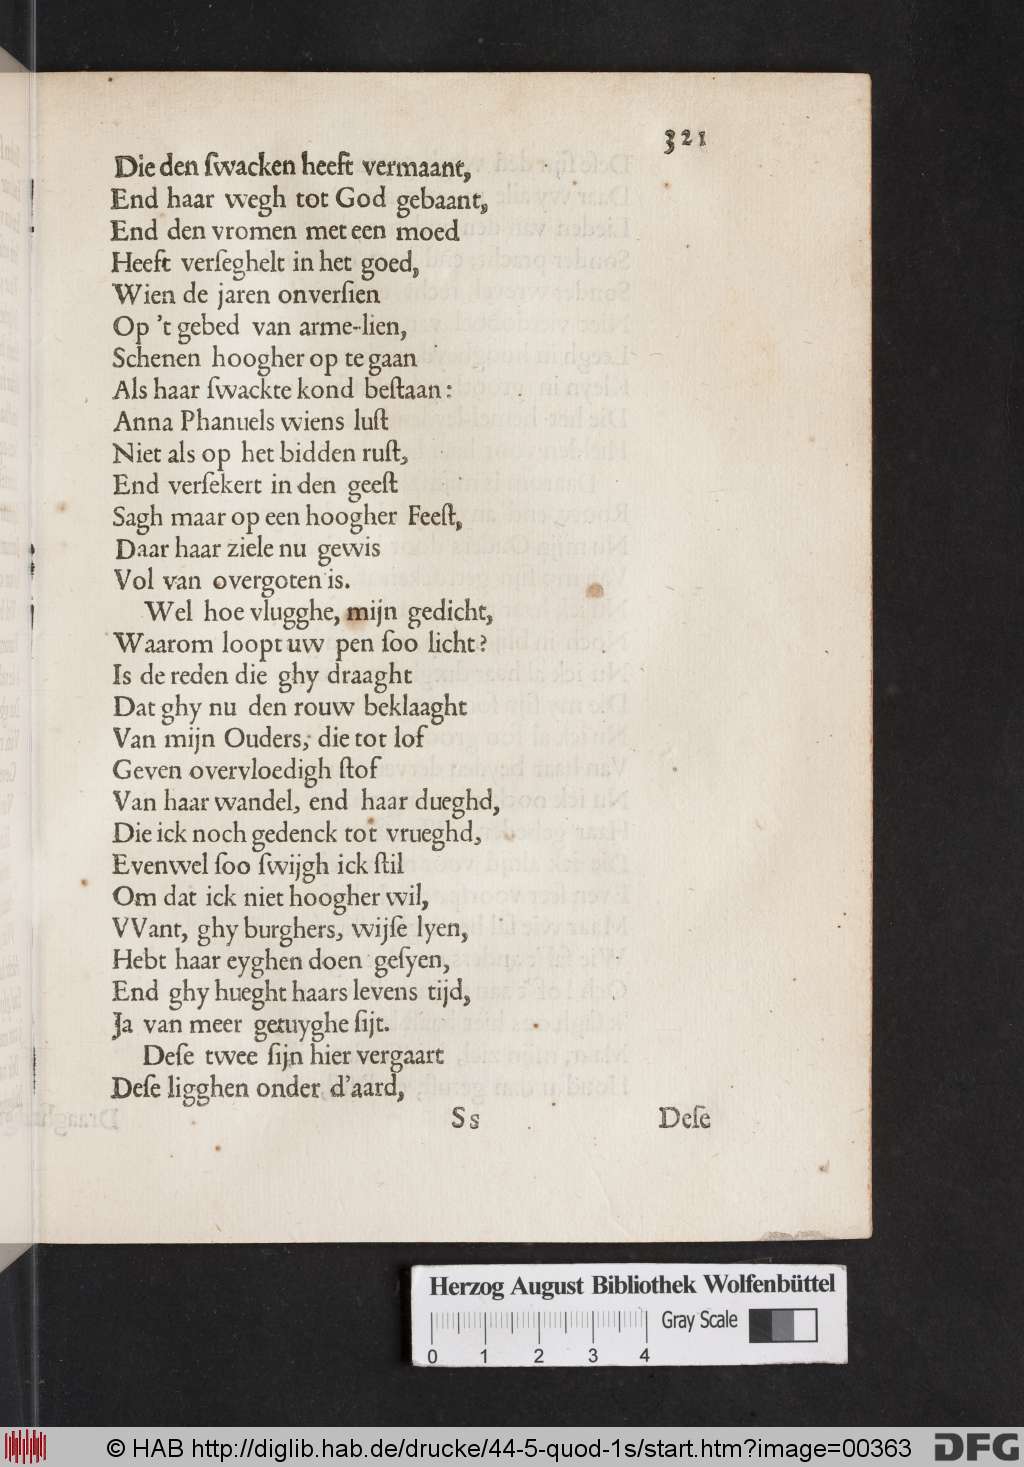 321
Die den ſwacken heeft vermaant,
End haar wegh tot God gebaant,
End den vromen met een moed
Heeft verſeghelt in het goed,
Wien de jaren onverſien
Op 't gebed van arme-lien,
Schenen hoogher op te gaan
Als haar ſwackte kond beſtaan:
Anna Phanuels wiens luſt
Niet als op het bidden ruſt,
End verſekert in den geeſt
Sagh maar op een hoogher Feeſt,
Daar haar ziele nu gewis
Vol van overgoten is.
Wel hoe vlugghe, mijn gedicht,
Waarom loopt uw pen ſoo licht?
Is de reden die ghy draaght
Dat ghy nu den rouw beklaaght
Van mijn Ouders, die tot lof
Geven overvloedigh ſtof
Van haar wandel, end haar dueghd,
Die ick noch gedenck tot vrueghd,
Evenwel ſoo ſwijgh ick ſtil
Om dat ick niet hoogher wil,
VVant, ghy burghers, wijſe lyen,
Hebt haar eyghen doen geſyen,
End ghy hueght haars levens tijd,
Ja van meer getuyghe ſijt.
Deſe twee ſijn hier vergaart
Deſe ligghen onder d'aard,
Ss Deſe
Herzog August Bibliothek Wolfenbüttel
Gray Scale
0 1 2 3 4
© HAB http://diglib.hab.de/drucke/44-5-quod-1s/start.htm?image=00363 DFG